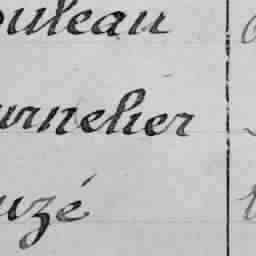 ouleau
urnelier
uzé